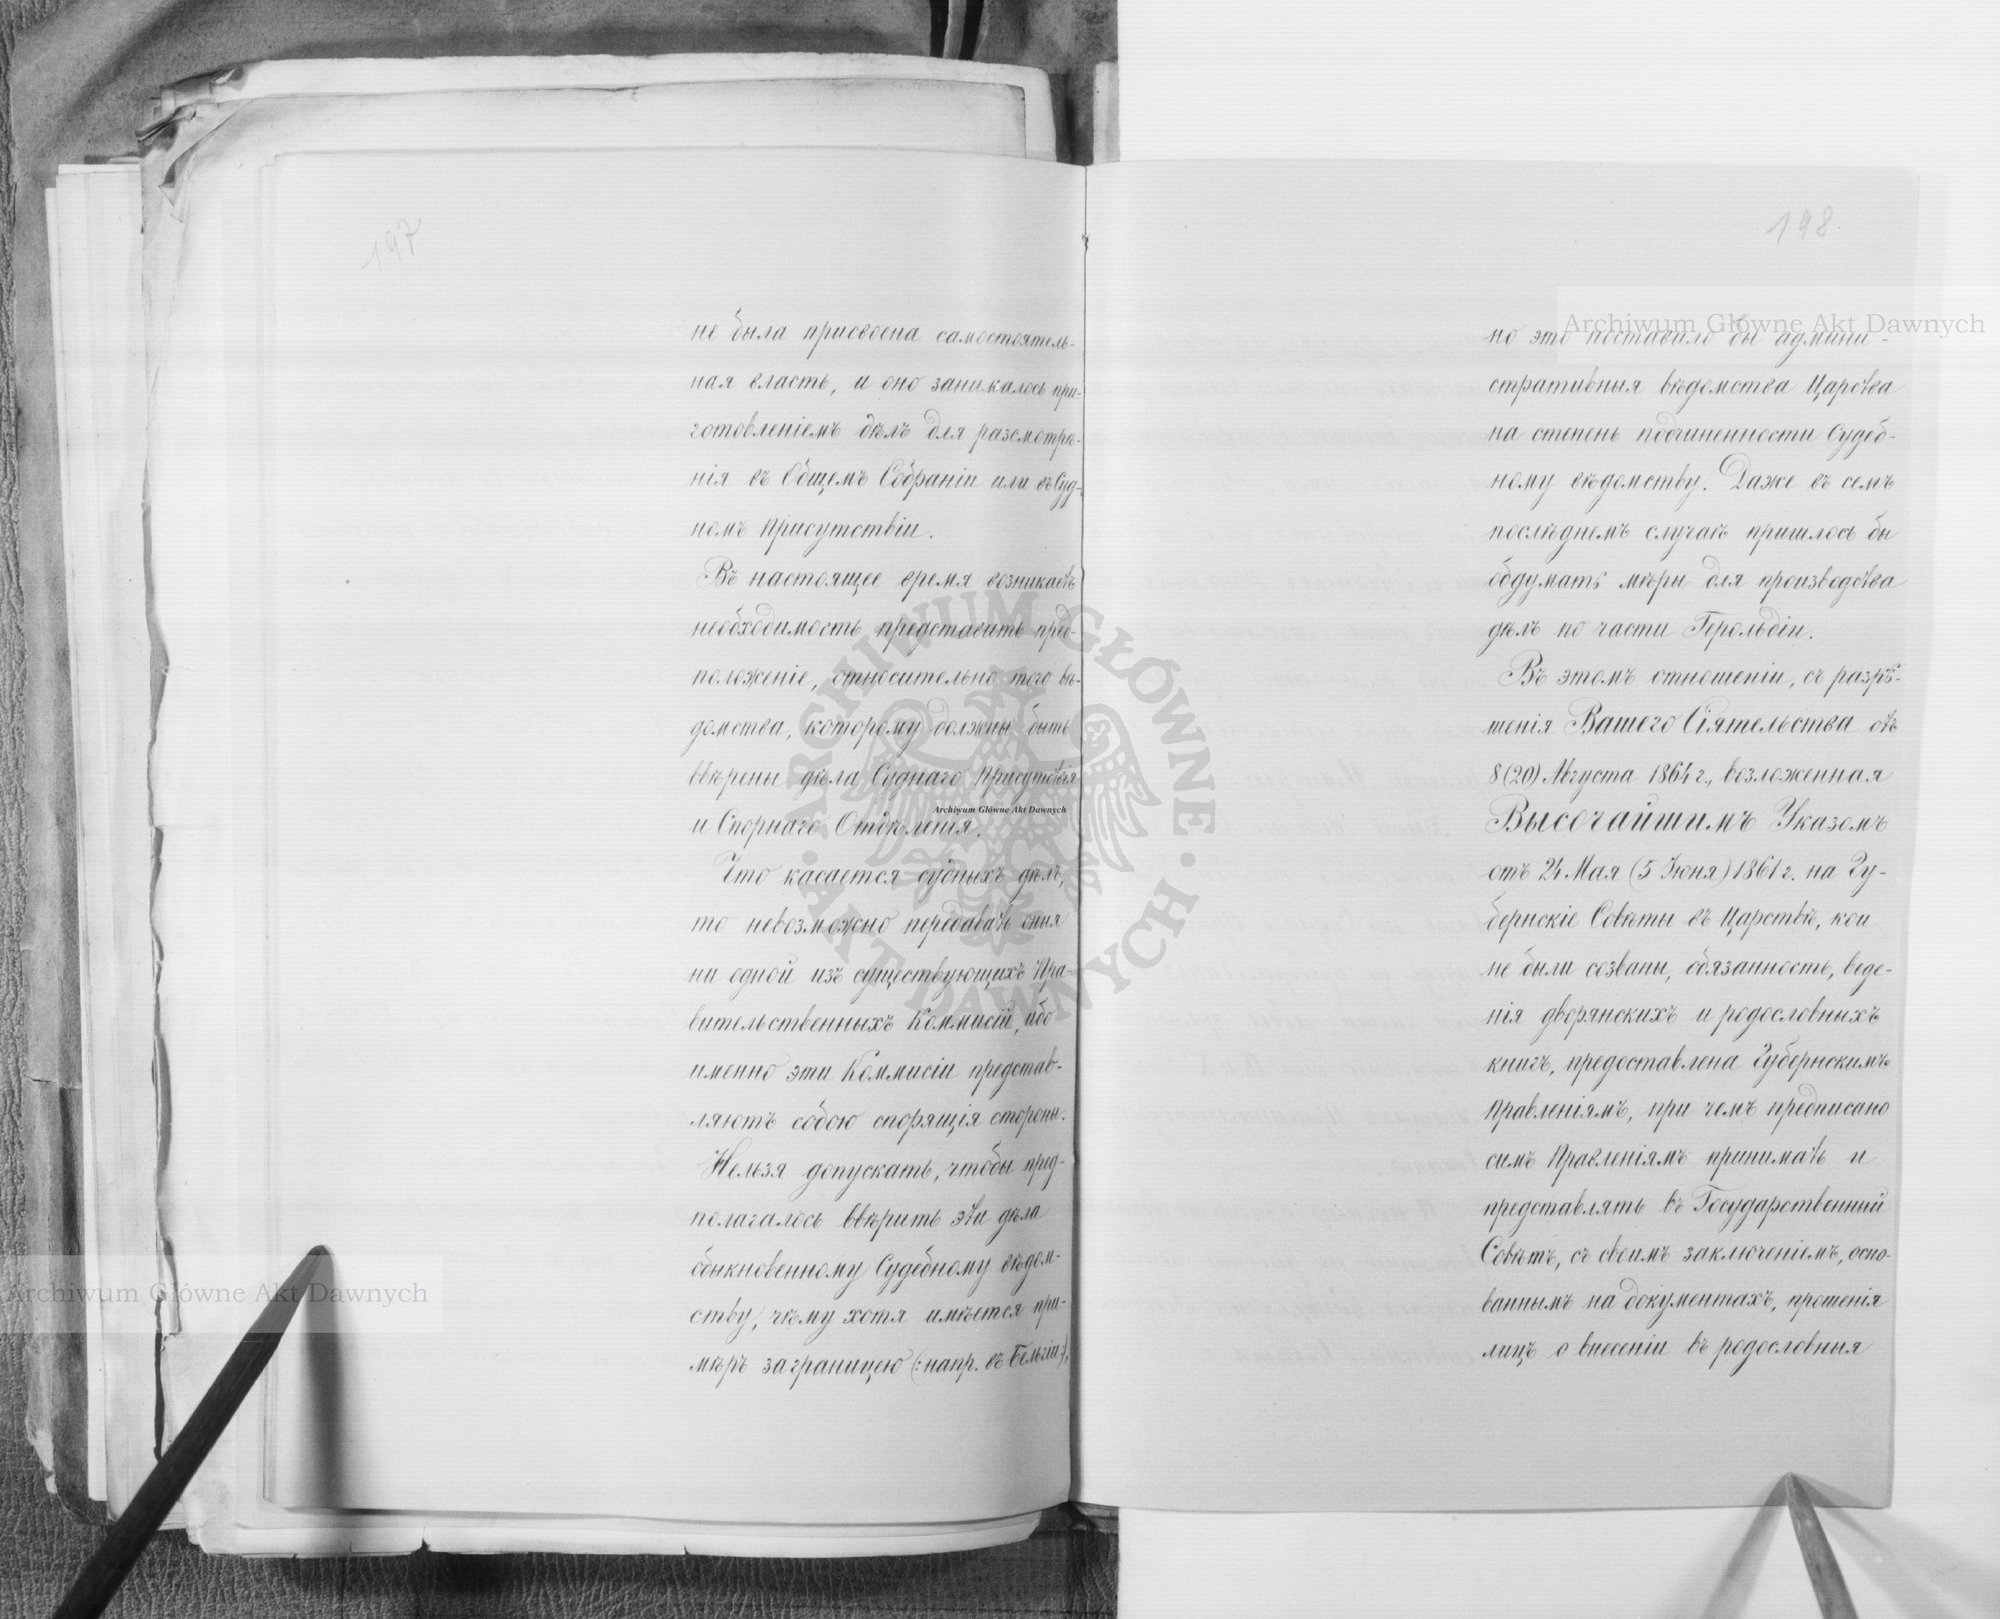 197
не была присвоена самостоятель-
ная власть, и оно занималось при-
готовленіемъ дѣлъ для разсмотрѣ-
нія въ Общемъ Собраніи или въ Суд-
номъ Присутствіи.
Въ настоящее время возникаетъ
необходимость представить пред-
положеніе, относительно того вѣ-
домства, которому должны быть
ввѣрены дѣла Суднаго Присутствія
и Спорнаго Отдѣленія.
Что касается судныхъ дѣлъ,
то невозможно передавать оныя
ни одной изъ существующихъ Пра-
вительственныхъ Коммисій, ибо
именно эти Коммисіи представ-
ляютъ собою спорящія стороны.
Нельзя допускать, чтобы пред-
полагалось ввѣрить эти дѣла
обыкновенному Судебному вѣдом-
ству, чему хотя имѣется при-
мѣръ заграницею (: напр. въ Бельгіи:),
198.
но это поставило бы админи-
стративныя вѣдомства Царства
на степень подчиненности Судеб-
ному вѣдомству. Даже въ семъ
послѣднемъ случаѣ пришлось бы
обдумать мѣры для производства
дѣлъ по части Герольдіи.
Въ этомъ отношеніи, съ разрѣ-
шенія Вашего Сіятельства отъ
8 (20) Августа 1864 г., возложенная
Высочайшимъ Указомъ
отъ 24 Мая (5 Іюня) 1861 г. на Гу-
бернскіе Совѣты въ Царствѣ, кои
не были созваны, обязанность, веде-
нія дворянскихъ и родословныхъ
книгъ, предоставлена Губернскимъ
Правленіямъ, при чемъ предписано
симъ Правленіямъ принимать и
представлять въ Государственный
Совѣтъ, съ своимъ заключеніемъ, осно-
ваннымъ на документахъ, прошенія
лицъ о внесеніи въ родословныя
Archiwum Główne Akt Dawnych
Archiwum Główne Akt Dawnych
Archiwum Główne Akt Dawnych
ARCHIWUM GŁÓWNE · AKT DAWNYCH ·